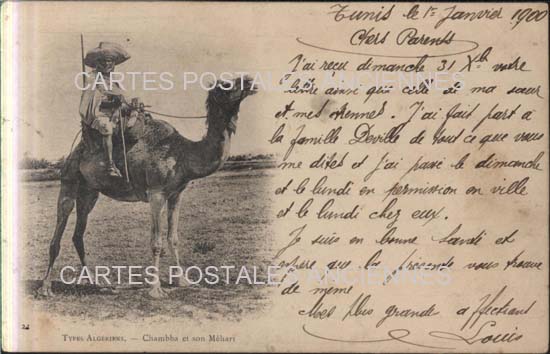 Tunis le 1r Janvier 1900
Chers Parents
J'ai reçu dimanche 31 Xb votre
lettre ainsi que celle de ma sœur
et mes étrennes. J'ai fait part à
la famille Deville de tout ce que vous
me dites et j'ai passé le dimanche
et le lundi en permission en ville
et le lundi chez eux.
Je suis en bonne santé et
espère que la présente vous trouve
de même
Mes plus grande affections
Louis
CARTES POSTALES ANCIENNES
CARTES POSTALES ANCIENNES
TYPES ALGÉRIENS. — Chambba et son Méhari